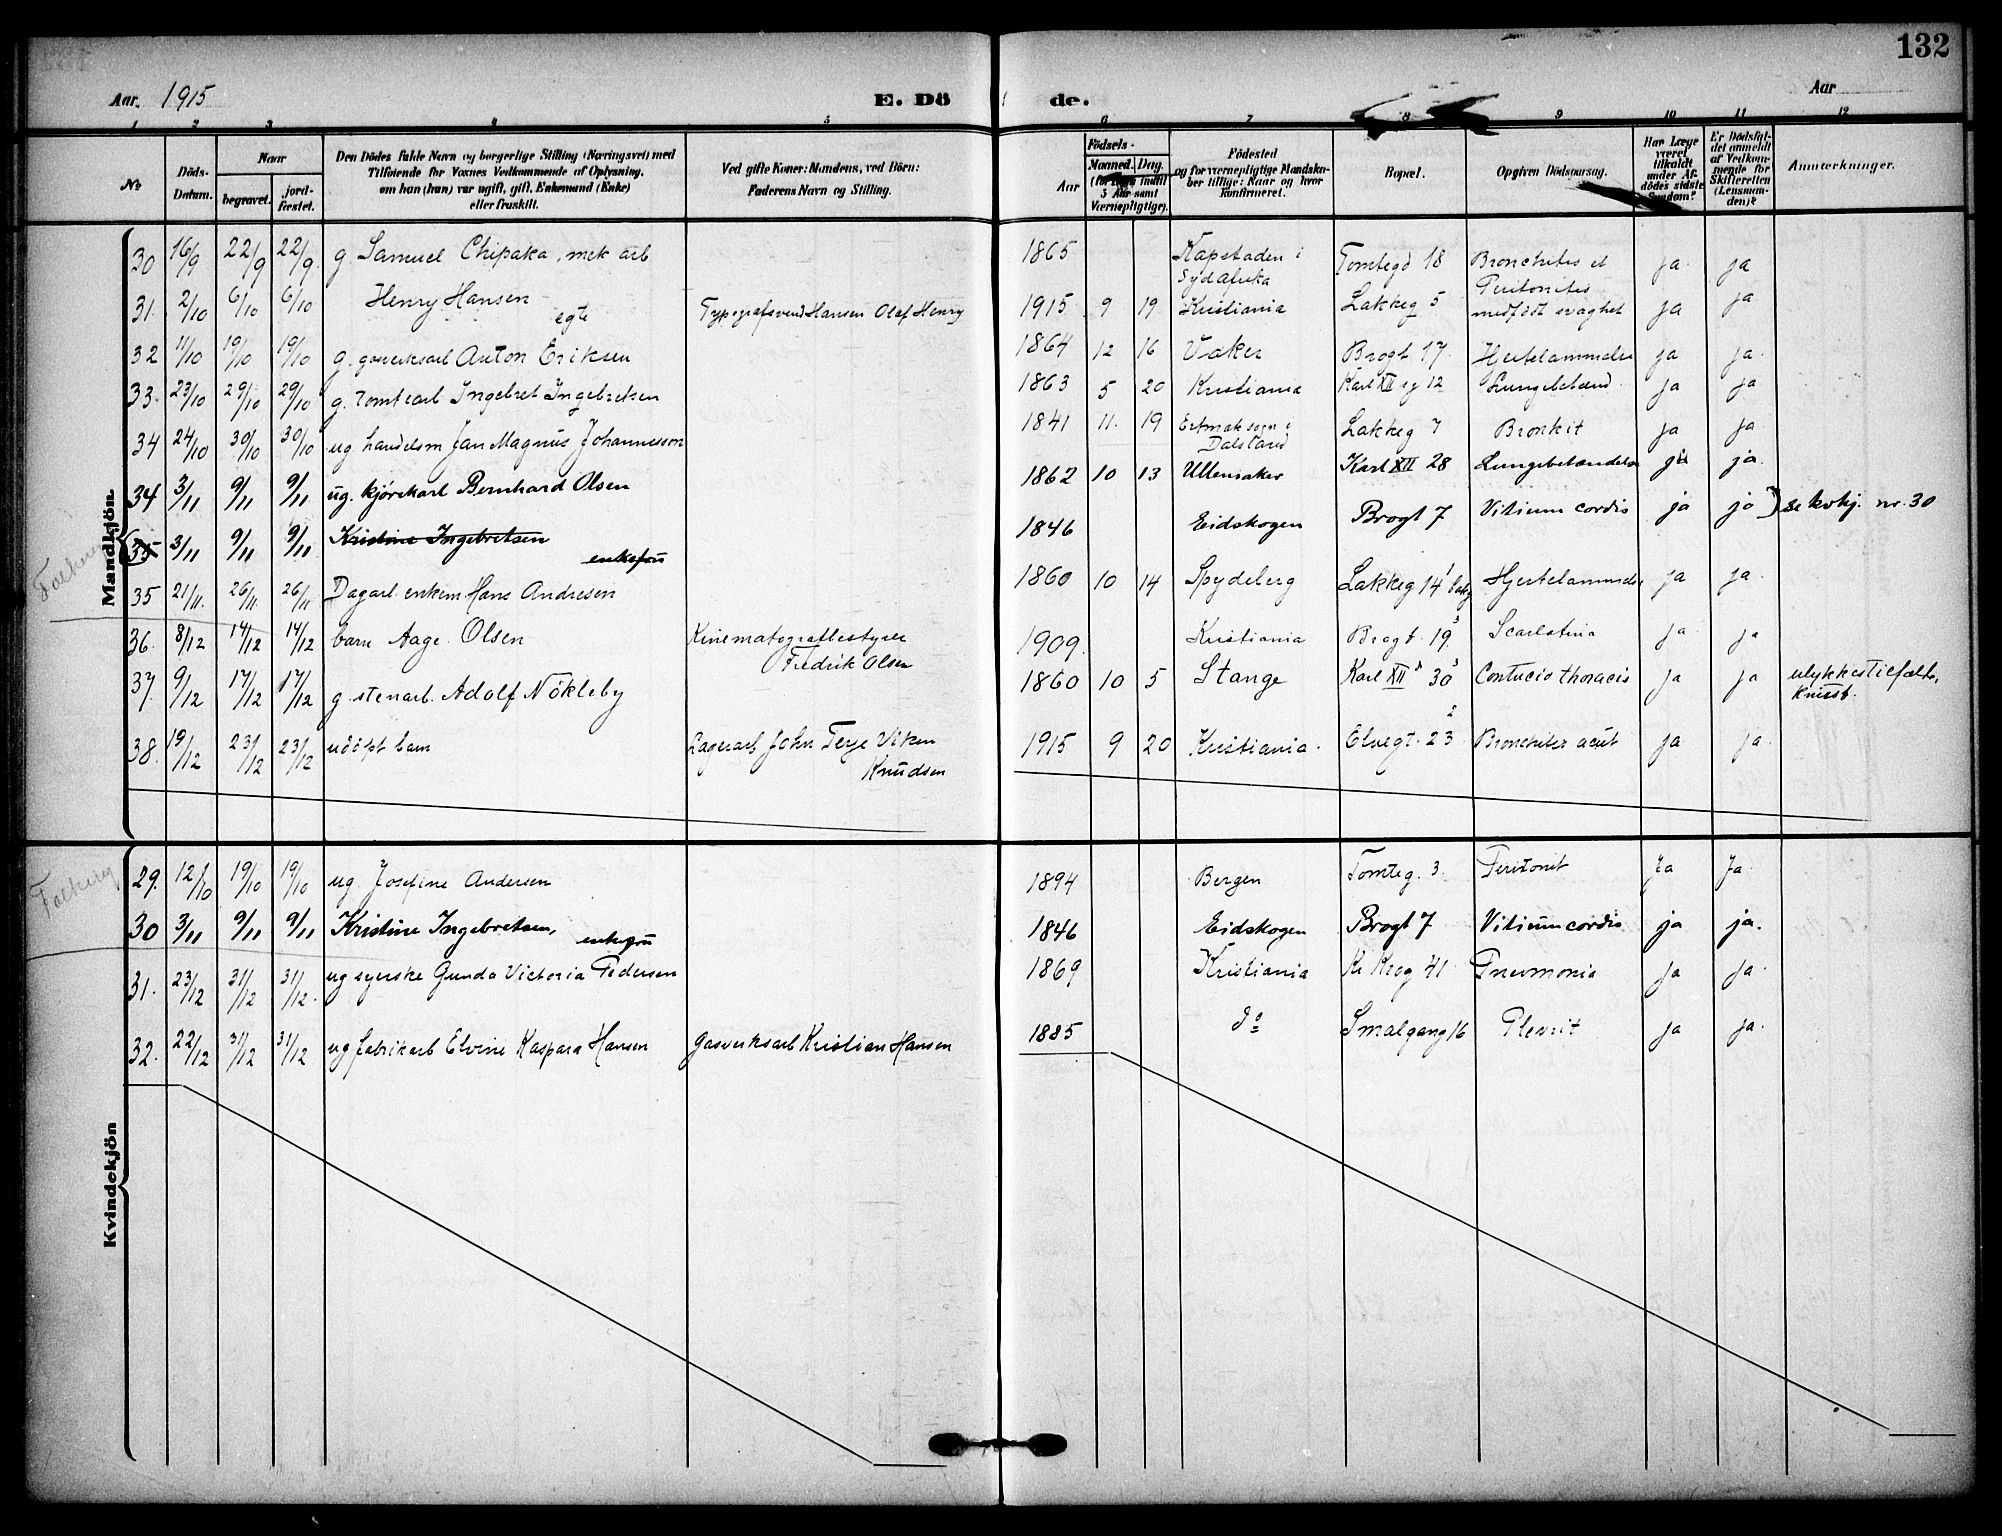 132
Aar. 1915 E. Dö de. Aar
1 2 3 4 5 6 7 8 9 10 11 12
№ Döds-Datum. Naar begravet. jordfæstet. Den Dödes fulde Navn og borgerlige Stilling (Næringsvei) med Tilföiende for Voxnes Vedkommende af Oplysning, om han (hun) var ugift, gift, Enkemand (Enke) eller fraskilt. Ved gifte Koner: Mandens, ved Börn: Faderens Navn og Stilling. Födsels- Aar Maaned. Dag. (for Börn indtil 5 Aar samt Værnepligtige). Födested og for værnepligtige Mandskaber tillige: Naar og hvor konfirmeret. Bopæl. Opgiven Dödsaarsag. Har Læge været tilkaldt under Afdödes sidste Sygdom? Er Dödsfaldet anmeldt af Vedkommende for Skifteretten (Lensmanden)? Anmærkninger.
Mandkjön.
30 16/9 22/9 22/9 g Samuel Chipaka, mek arb 1865 Kapstaden i Sydafrika Tomtegd 18 Bronchites et Peritonites ja ja
31. 2/10 6/10 6/10 Henry Hansen egte Typografsvend Hansen Olaf Henry 1915 9 19 Kristiania Lakkeg 5 medfödt svaghet ja ja
32 11/10 19/10 19/10 g. gasverksarb Anton Eriksen 1864 12 16 Vaker Brogt 17. Hjertelammelse ja ja.
33. 23/10 29/10 29/10 g. Tomtearb Ingebret Ingebretsen 1863 5 20 Kristiania Karl XII sg 12 Lungebetænd. ja ja
34 24/10 30/10 30/10 ug. handelsm Jan Magnus Johannesson 1841 11. 19 Dalsland Lakkeg 7 Bronkit ja ja
34 3/11 9/11 9/11 ug. kjörekarl Bernhard Olsen 1862 10 13 Ullensaker Karl XII 28 Lungebetændelse ja ja.
35 3/11 9/11 9/11 Kristine Ingebretsen enkefru 1846 Eidskogen Brogt 7 Vitium cordis ja ja ) se kvkj. nr. 30
35 21/11. 26/11 26/11 Dagarb. enkem Hans Andresen 1860 10 14 Spydeberg Lakkeg 14 Hjertelammelse ja ja.
36. 8/12 14/12 14/12 barn Aage Olsen Kinematografbestyrer Fredrik Olsen 1909. Kristiania Brogt. 19 3 Scarlatina ja ja
37. 9/12 17/12 17/12 g. stenarb. Adolf Nökleby 1860 10 5 Stange Karl XII s 30 3 Contucio thoracis ja ja ulykkestilfælde, knust.
38. 19/12 23/12 23/12 udöpt barn Lagerarb John Terje Viken Knudsen 1915 9 20 Kristiania. Elvegt. 23 2 Bronchites acut ja ja.
Kvindekjön
29. 12/10 19/10 19/10 ug Josefine Andersen 1894 Bergen Tomteg. 3. Peritonit Ja Ja.
30 3/11 9/11 9/11 Kristine Ingebretsen, enkefru 1846 Eidskogen Brogt 7 Vitium cordis ja ja.
31. 23/12 31/12 31/12. ug syerske Gunda Victoria Pedersen 1869 Kristiania Kr Krog 41 Pnevmonia ja ja.
32. 22/12 31/12 31/12 ug fabrikarb Elvine Kaspara Hansen Gasverksarb Kristian Hansen 1885 do Smalgang 16 Plevrit ja ja.